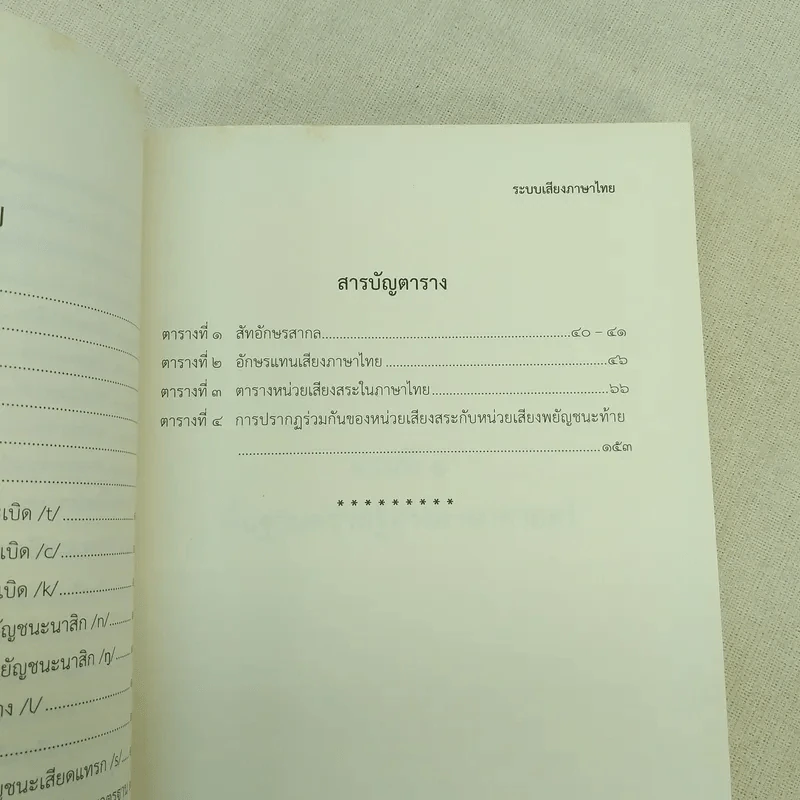 ะเบิด /t/
เบิด /c/
เบิด /k/
ัญชนะนาสิก /n/
ยัญชนะนาสิก /ŋ/
าง /l/
ญชนะเสียดแทรก /s/
ระบบเสียงภาษาไทย
สารบัญตาราง
ตารางที่ ๑ สัทอักษรสากล..........๔๐ – ๔๑
ตารางที่ ๒ อักษรแทนเสียงภาษาไทย..........๔๖
ตารางที่ ๓ ตารางหน่วยเสียงสระในภาษาไทย..........๖๖
ตารางที่ ๔ การปรากฏร่วมกันของหน่วยเสียงสระกับหน่วยเสียงพยัญชนะท้าย
..........๑๕๓
* * * * * * * * *